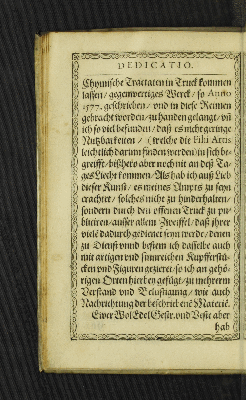 DEDICATIO.
Chymische Tractaten in Truck kommen
lassen/ gegenwertiges Werck/ so Anno
1577. geschrieben/ vnd in diese Reimen
gebracht worden/ zu handen gelangt/ vñ
ich so viel befunden/ daß es nicht geringe
Nutzbarkeiten/ (welche die Filii Artis
leichtlich darinn finden werden) in sich be-
greifft/ bißhero aber noch nit an deß Ta-
ges Liecht kommen/ Als hab ich auß Lieb
dieser Kunst/ es meines Ampts zu seyn
erachtet/ solches nicht zu hinderhalten/
sondern durch den offenen Truck zu pu-
bliciren/ ausser allem Zweiffel/ daß jhrer
viele dadurch gedienet seyn werde/ denen
zu Dienst vnnd bestem ich dasselbe auch
mit artigen vnd sinnreichen Kupfferstü-
cken vnd Figuren gezieret/ so ich an gehö-
rigen Orten hierbey gefügt/ zu mehrerm
Verstand vnd Belustigung/ wie auch
Nachrichtung der beschriebenē Materiē.
Ewer Wol Edel Gestr. vnd Vest aber
hab